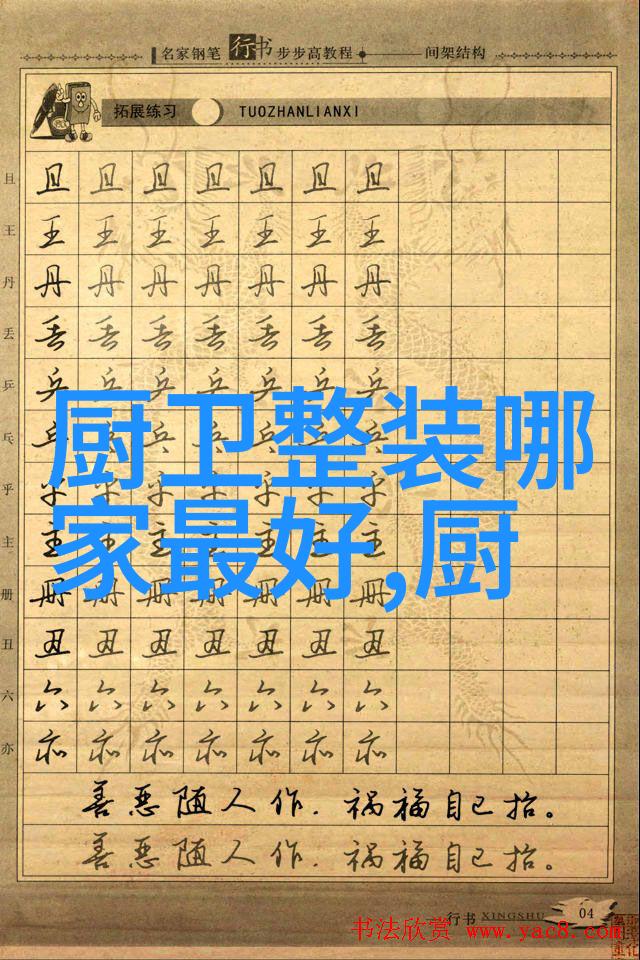 名家钢笔行书步步高教程 间架结构
拓展练习 TUOZHANLIANXI
且 且 且 且 且 且 且 且
王 王 王 王 王 王 王 王
丹 丹 丹 丹 丹 丹 丹 丹
丢 丢 丢 丢 丢 丢 丢 丢
乒 乒 乒 乒 乒 乒 乒 乒
乓 乓 乓 乓 乓 乓 乓 乓
乎 乎 乎 乎 乎 乎 乎 乎
主 主 主 主 主 主 主 主
册 册 册 册 册 册 册 册
丑 丑 丑 丑 丑 丑 丑 丑
六 六 六 六 六 六 六 六
亦 亦 亦 亦 亦 亦 亦 亦
厨卫整装哪
家最好,厨
善恶随人作.祸福自己招。
善恶随人作.祸福自己招。
行书 XINGSHU 04
书法欣赏 www.yac8.com